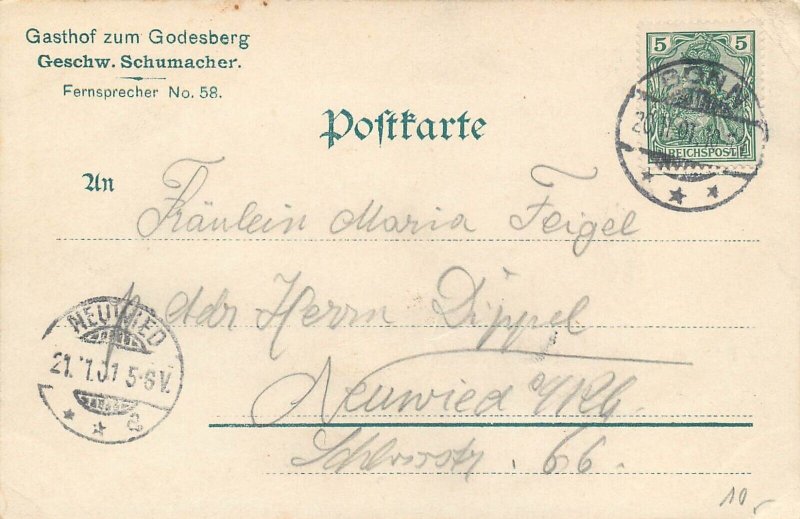 Gasthof zum Godesberg
Geschw. Schumacher.
Fernsprecher No. 58.
5 5
REICHSPOST
BONN
Postkarte
An
Fräulein Maria Feigel
adr Herrn Dippel
Neuwied a/Rh.
Schlossstr. 66.
NEUWIED
21. 7.01 5-6V.
10,-